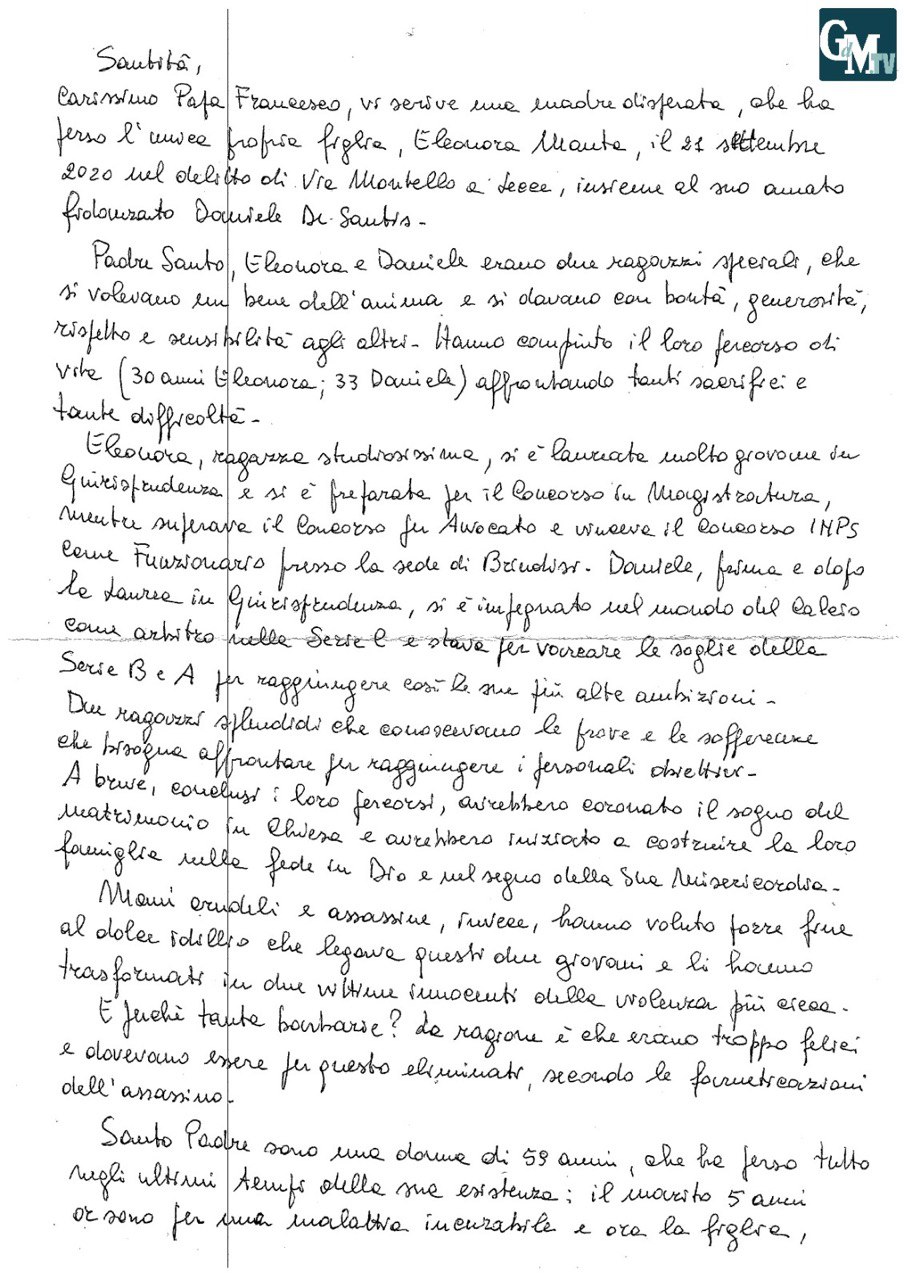 GdM TV
Santità,
Carissimo Papa Francesco, vi scrive una madre disperata, che ha
perso l'unica propria figlia, Eleonora Manta, il 21 settembre
2020 nel delitto di Via Montello a Lecce, insieme al suo amato
fidanzato Daniele De Santis-
Padre Santo, Eleonora e Daniele erano due ragazzi speciali, che
si volevano un bene dell'anima e si davano con bontà, generosità,
rispetto e sensibilità agli altri- Hanno compiuto il loro percorso di
vita (30 anni Eleonora; 33 Daniele) affrontando tanti sacrifici e
tante difficoltà-
Eleonora, ragazza studiosissima, si è laureata molto giovane in
Giurisprudenza e si è preparata per il Concorso in Magistratura,
mentre superava il Concorso per Avvocato e vinceva il Concorso INPS
come Funzionario presso la sede di Brindisi- Daniele, prima e dopo
la Laurea in Giurisprudenza, si è impegnato nel mondo del Calcio
come arbitro nella Serie C e stava per varcare le soglie della
Serie B e A per raggiungere così le sue più alte ambizioni-
Due ragazzi splendidi che conoscevano le prove e le sofferenze
che bisogna affrontare per raggiungere i personali obiettivi-
A breve, conclusi i loro percorsi, avrebbero coronato il sogno del
matrimonio in Chiesa e avrebbero iniziato a costruire la loro
famiglia nella fede in Dio e nel segno della Sua Misericordia-
Mani crudeli e assassine, invece, hanno voluto porre fine
al dolce idillio che legava questi due giovani e li hanno
trasformati in due vittime innocenti della violenza più cieca-
E perchè tanta barbarie? La ragione è che erano troppo felici
e dovevano essere per questo eliminati, secondo le farneticazioni
dell'assassino-
Santo Padre sono una donna di 59 anni, che ha perso tutto
negli ultimi tempi della sua esistenza: il marito 5 anni
or sono per una malattia incurabile e ora la figlia,